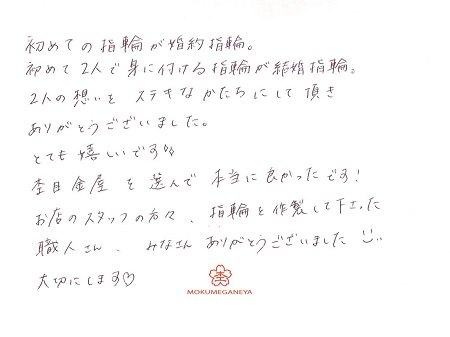 初めての指輪が婚約指輪。
初めて2人で身に付ける指輪が結婚指輪。
2人の想いを ステキなかたちにして頂き
ありがとうございました。
とても嬉しいです♪♪
杢目金屋を選んで本当に良かったです!
お店のスタッフの方々、指輪を作製して下さった
職人さん、みなさんありがとうございました
大切にします♡
杢
MOKUMEGANEYA